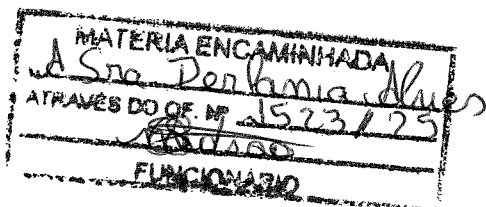 MATÉRIA ENCAMINHADA
A Sra Derlania Alves
ATRAVÉS DO OF. Nº 1523/25
FUNCIONÁRIO